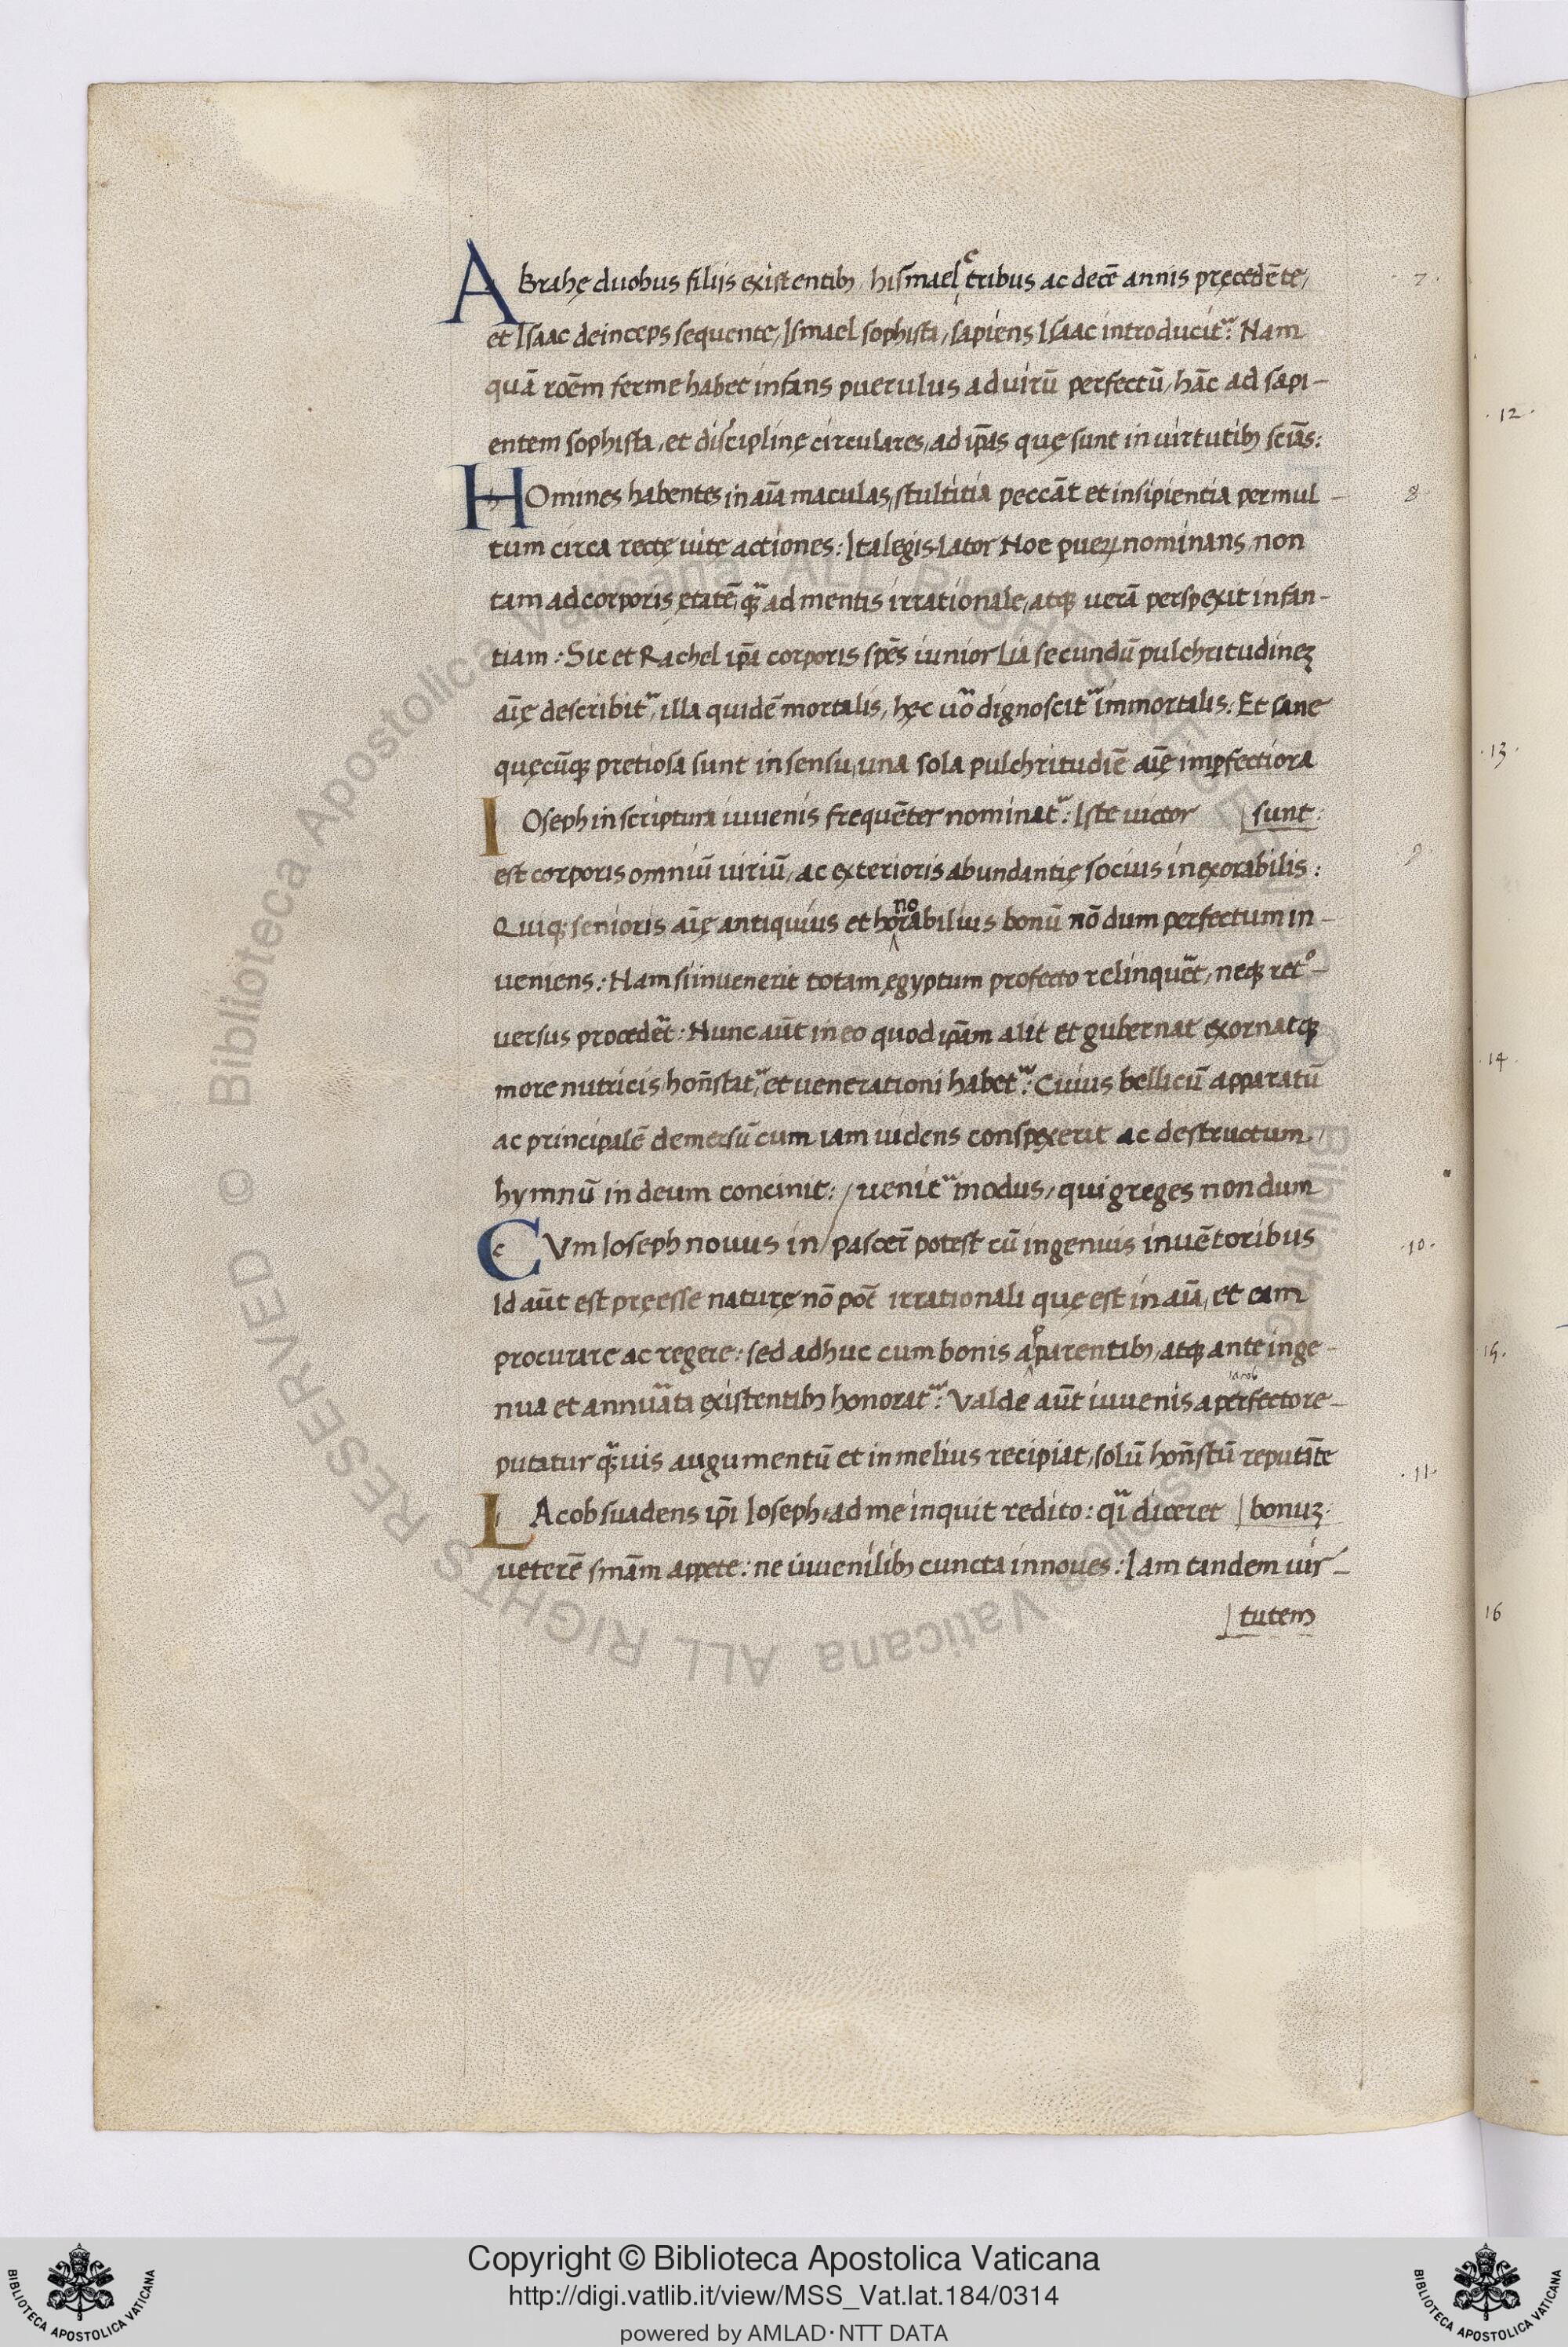 ABrahę duobus filiis existentib₉, hismaelᵉ tribus ac decē annis pręcedēte, 7.
et Isaac deinceps sequente, Ismael sophista, sapiens Isaac introducit᷑: Nam
quā roēm ferme habet infans puerulus ad uirū perfectū, hāc ad sapi-
entem sophista, et disciplinę circulares, ad ip̄as quę sunt in uirtutib₉ sciās:
HOmines habentes in aīa maculas, stultitia peccāt et insipientia permul- 8
tum circa rectę uitę actiones: Ita legis lator Noe pueꝝ nominans, non
tam ad corporis ętatē, q̄ꝫ ad mentis irrationale, atqꝫ uerā perspexit infan-
tiam: Sic et Rachel ip̄a corporis spēs iunior Lia secundū pulchritudineꝫ
aīę describit᷑, illa quidē mortalis, hęc uō dignoscit᷑ immortalis: Et sane
quęcūqꝫ pretiosa sunt in sensu, una sola pulchritudīe aīę imꝑfectiora
IOseph in scriptura iuuenis frequēter nominat᷑: Iste uictor | sunt: 9.
est corporis omniū uiriū, ac exterioris abundantię socius inexorabilis:
Quiqꝫ senioris aīę antiquius et honorabilius bonū nō dum perfectum in-
ueniens: Nam si inuenerit totam ęgyptum profecto relinquēt, neqꝫ retᵒ-
uersus procedēt: Nunc aūt in eo quod ip̄am alit et gubernat exornatqꝫ
more nutricis, hon̄stat᷑, et uenerationi habet᷑: Cuius bellicū apparatū
ac principalē demersū cum iam uidens conspexerit ac destructum,
hymnū in deum concinit: / uenit᷑ modus, qui greges nondum
CVm Ioseph nouus in / pasceī potest cū ingenuis inuētoribus .10.
Id aūt est pręesse naturę nō pōt irrationali quę est in aīa, et eam
procurare ac regere: sed adhuc cum bonis apparentib₉, atqꝫ ante inge-
nua et annuāta existentib₉ honorat᷑: Valde aūt iuuenis a perfectore-
iacob
putatur q̄ꝫuis augumentū et in melius recipiat, solū hon̄stū reputāte
IAcob suadens ip̄i Ioseph, ad me inquit redito: q̄i diceret | bonuꝫ: .11.
ueterē sn̄am appete: ne iuuenilib₉ cuncta innoues: Iam tandem uir-
| tutem
.12.
.13.
.14.
.15.
16
© Biblioteca Apostolica Vaticana ALL RIGHTS RESERVED
Copyright © Biblioteca Apostolica Vaticana
http://digi.vatlib.it/view/MSS_Vat.lat.184/0314
powered by AMLAD·NTT DATA
BIBLIOTECA APOSTOLICA VATICANA
BIBLIOTECA APOSTOLICA VATICANA